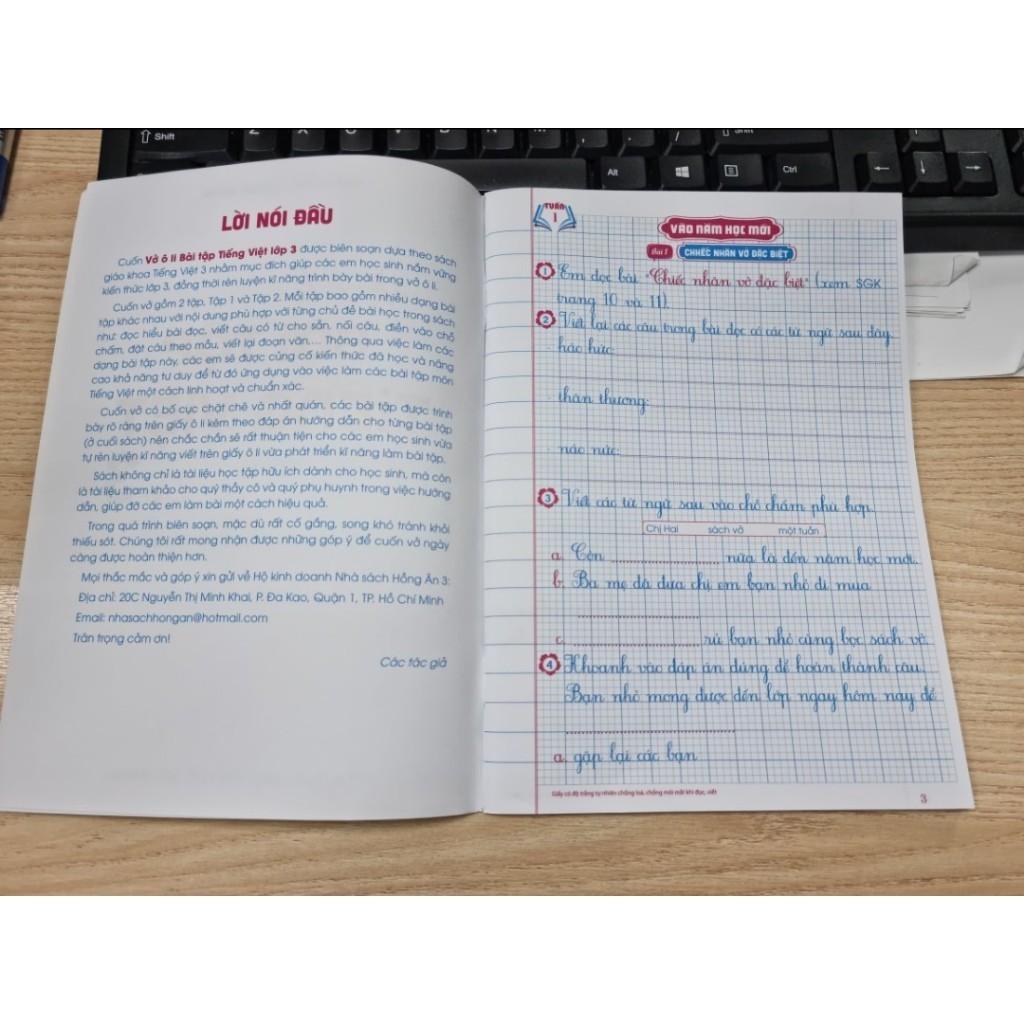 Shift
Alt
Ctrl
LỜI NÓI ĐẦU
Cuốn Vở ô li Bài tập Tiếng Việt lớp 3 được biên soạn dựa theo sách
giáo khoa Tiếng Việt 3 nhằm mục đích giúp các em học sinh nắm vững
kiến thức lớp 3, đồng thời rèn luyện kĩ năng trình bày bài trong vở ô li.
Cuốn vở gồm 2 tập, Tập 1 và Tập 2. Mỗi tập bao gồm nhiều dạng bài
tập khác nhau với nội dung phù hợp với từng chủ đề bài học trong sách
như: đọc hiểu bài đọc, viết câu có từ cho sẵn, nối câu, điền vào chỗ
chấm, đặt câu theo mẫu, viết lại đoạn văn,... Thông qua việc làm các
dạng bài tập này, các em sẽ được củng cố kiến thức đã học và nâng
cao khả năng tư duy để từ đó ứng dụng vào việc làm các bài tập môn
Tiếng Việt một cách linh hoạt và chuẩn xác.
Cuốn vở có bố cục chặt chẽ và nhất quán, các bài tập được trình
bày rõ ràng trên giấy ô li kèm theo đáp án hướng dẫn cho từng bài tập
(ở cuối sách) nên chắc chắn sẽ rất thuận tiện cho các em học sinh vừa
tự rèn luyện kĩ năng viết trên giấy ô li vừa phát triển kĩ năng làm bài tập.
Sách không chỉ là tài liệu học tập hữu ích dành cho học sinh, mà còn
là tài liệu tham khảo cho quý thầy cô và quý phụ huynh trong việc hướng
dẫn, giúp đỡ các em làm bài một cách hiệu quả.
Trong quá trình biên soạn, mặc dù rất cố gắng, song khó tránh khỏi
thiếu sót. Chúng tôi rất mong nhận được những góp ý để cuốn vở ngày
càng được hoàn thiện hơn.
Mọi thắc mắc và góp ý xin gửi về Hộ kinh doanh Nhà sách Hồng Ân 3:
Địa chỉ: 20C Nguyễn Thị Minh Khai, P. Đa Kao, Quận 1, TP. Hồ Chí Minh
Email: nhasachhongan@hotmail.com
Trân trọng cảm ơn!
Các tác giả
TUẦN
1
VÀO NĂM HỌC MỚI
Bài 1 CHIẾC NHÃN VỞ ĐẶC BIỆT
1 Em đọc bài "Chiếc nhãn vở đặc biệt" (xem SGK
trang 10 và 11).
2 Viết lại các câu trong bài đọc có các từ ngữ sau đây.
- háo hức:
- thân thương:
- náo nức:
3 Viết các từ ngữ sau vào chỗ chấm phù hợp.
Chị Hai sách vở một tuần
a. Còn .................... nữa là đến năm học mới.
b. Ba mẹ đã đưa chị em bạn nhỏ đi mua
....................
c. .................... rủ bạn nhỏ cùng bọc sách vở.
4 Khoanh vào đáp án đúng để hoàn thành câu.
Bạn nhỏ mong được đến lớp ngay hôm nay để
....................
a. gặp lại các bạn
Giấy có độ trắng tự nhiên chống loá, chống mỏi mắt khi đọc, viết
3